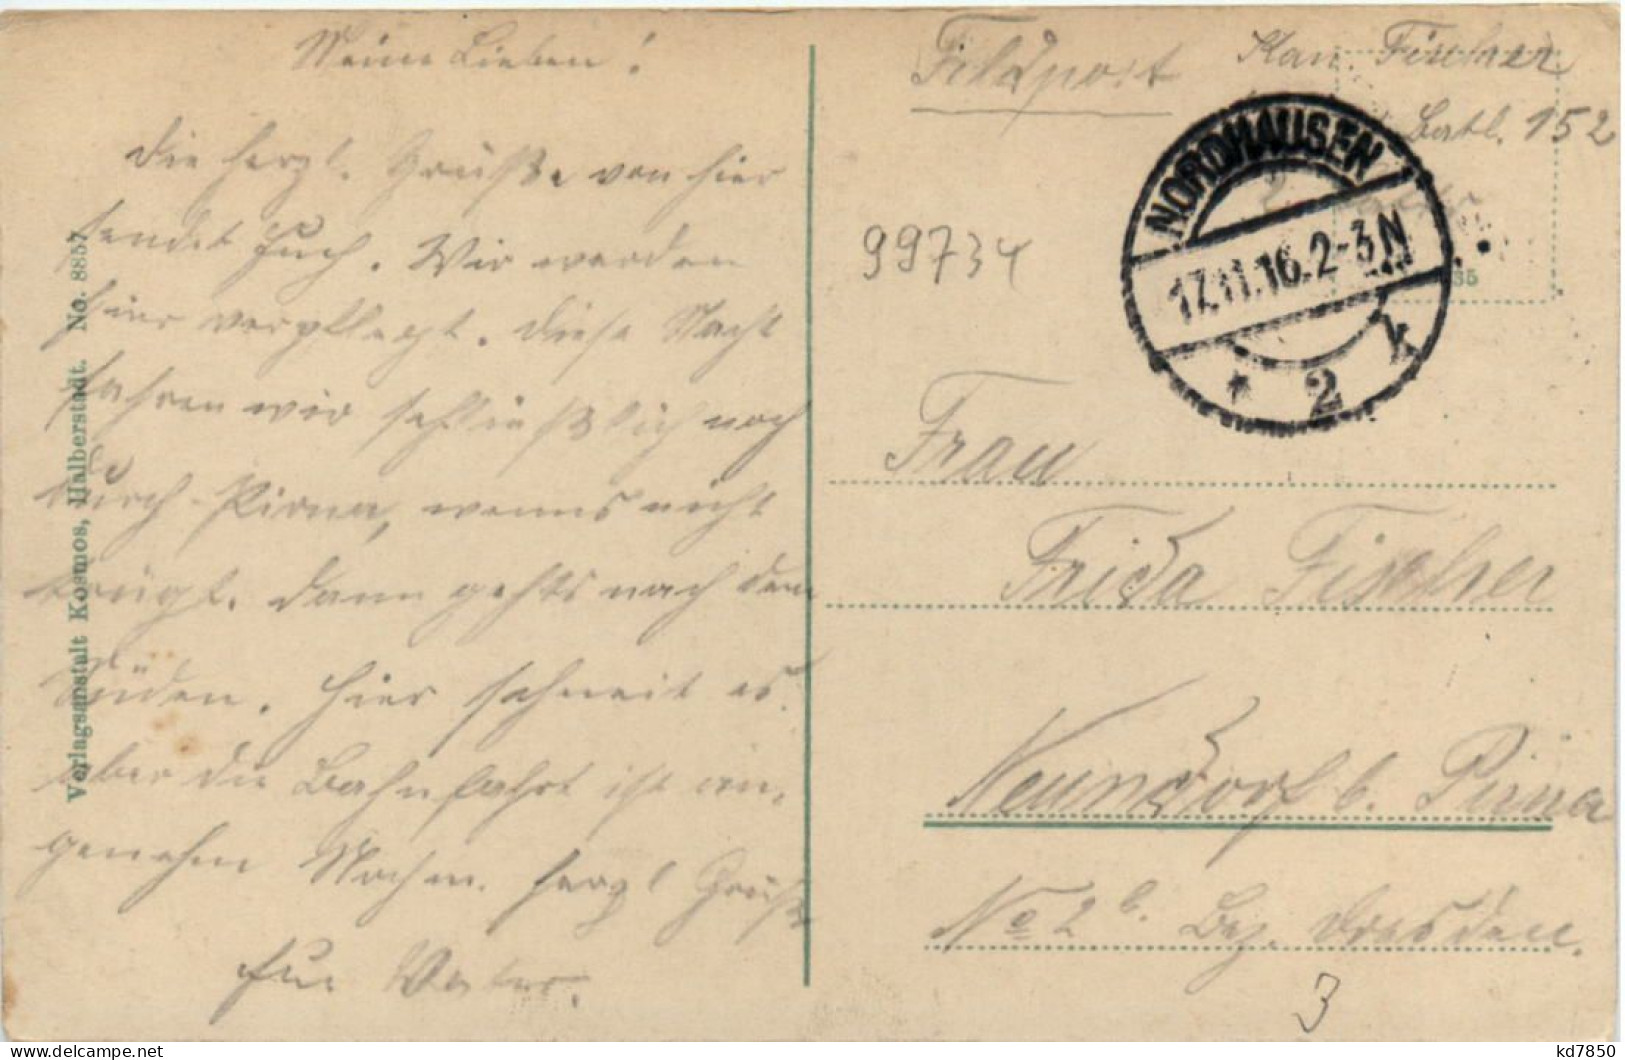 Meine Lieben!
Die herzl. Grüße von hier
sendet Euch. Wir werden
hier verpflegt. Diese Nacht
fahren wir schließlich noch
durch Pirna, wenns nicht
trügt. Dann gehts nach dem
Süden. Hier schneit es.
aber die Bahnfahrt ist an-
genehm Nochm. herzl Grüße
Eue Vater.
Verlagsanstalt Kosmos, Halberstadt. No. 8857
Feldpost
Kan. Fischer
Batl. 152
NORDHAUSEN
17.11.16.2-3N
* 2 k
35
99734
Frau
Frida Fischer
Neundorf b. Pirna
No 2b. Bez. Dresden.
3
kd7850